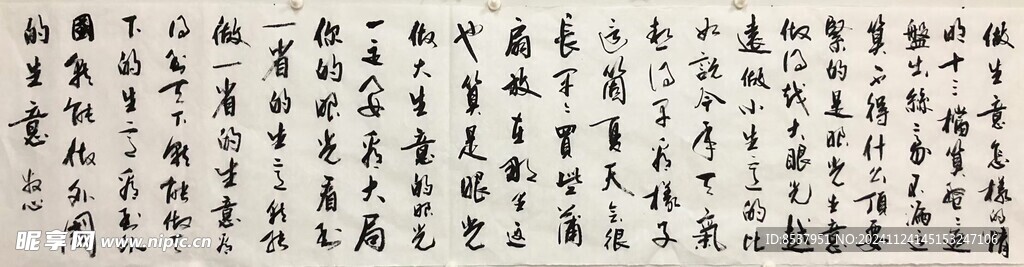 做生意怎樣的精
明十三檔算盤三這
盤出絲三家不漏這
算不得什么頂要
緊的是眼光生意
做得越大眼光越
遠做小生意的比
如說今年天氣
熱得早看樣子
這箇夏天會很
長早早買些蒲
扇放在那里這
也算是眼光
做大生意的眼光
一定要看大局
你的眼光看到
一省的生意就能
做一省的生意看
得到天下就能做天
下的生意看到外
國就能做外國
的生意
昵享网 www.nipic.cn
ID:8537951 NO:20241124145153247106